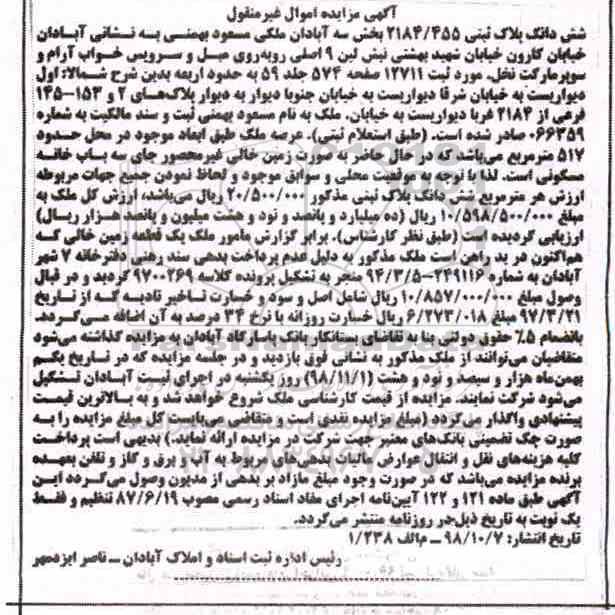 آگهی مزایده اموال غیرمنقول
شش دانگ پلاک ثبتی ۲۱۸۴/۴۵۵ بخش سه آبادان ملکی مسعود بهمنی به نشانی آبادان
خیابان کارون خیابان شهید بهشتی نبش لین ۹ اصلی روبه‌روی مبل و سرویس خواب آرام و
سوپرمارکت نخل. مورد ثبت ۱۲۷۱۱ صفحه ۵۷۴ جلد ۵۹ به حدود اربعه بدین شرح شمالا: اول
دیواریست به خیابان شرقا دیواریست به خیابان جنوبا دیوار به دیوار پلاک‌های ۲ و ۱۵۳-۱۴۵
فرعی از ۲۱۸۴ غربا دیواریست به خیابان. ملک به نام مسعود بهمنی ثبت و سند مالکیت به شماره
۰۶۶۳۵۹ صادر شده است. (طبق استعلام ثبتی). عرصه ملک طبق ابعاد موجود در محل حدود
۵۱۷ مترمربع می‌باشد که در حال حاضر به صورت زمین خالی غیرمحصور جای سه باب خانه
مسکونی است. لذا با توجه به موقعیت محلی و سوابق موجود و لحاظ نمودن جمیع جهات مربوطه
ارزش هر مترمربع شش دانگ پلاک ثبتی مذکور ۲۰/۵۰۰/۰۰۰ ریال می‌باشد، ارزش کل ملک به
مبلغ ۱۰/۵۹۸/۵۰۰/۰۰۰ ریال (ده میلیارد و پانصد و نود و هشت میلیون و پانصد هزار ریال)
ارزیابی گردیده است (طبق نظر کارشناس). برابر گزارش مامور ملک یک قطعه زمین خالی که
هم‌اکنون در ید راهن است ملک مذکور به دلیل عدم پرداخت بدهی سند رهنی دفترخانه ۷ شهر
آبادان به شماره ۲۴۹۱۱۶-۹۴/۳/۵ منجر به تشکیل پرونده کلاسه ۹۷۰۰۲۶۹ گردید و در قبال
وصول مبلغ ۱۰/۸۵۷/۰۰۰/۰۰۰ ریال شامل اصل و سود و خسارت تاخیر تادیه که از تاریخ
۹۷/۳/۲۱ مبلغ ۶/۲۷۳/۰۱۸ ریال خسارت روزانه با نرخ ۳۴ درصد به آن اضافه می‌گردد.
بانضمام ۵٪ حقوق دولتی بنا به تقاضای بستانکار بانک پاسارگاد آبادان به مزایده گذاشته می‌شود
متقاضیان می‌توانند از ملک مذکور به نشانی فوق بازدید و در جلسه مزایده که در تاریخ یکم
بهمن‌ماه هزار و سیصد و نود و هشت (۹۸/۱۱/۱) روز یکشنبه در اجرای ثبت آبادان تشکیل
می‌شود شرکت نمایند. مزایده از قیمت کارشناسی ملک شروع خواهد شد و به بالاترین قیمت
پیشنهادی واگذار می‌گردد (مبلغ مزایده نقدی است و متقاضی می‌بایست کل مبلغ مزایده را به
صورت چک تضمینی بانک‌های معتبر جهت شرکت در مزایده ارائه نماید.) بدیهی است پرداخت
کلیه هزینه‌های نقل و انتقال عوارض مالیات بدهی‌های مربوط به آب و برق و گاز و تلفن بعهده
برنده مزایده می‌باشد که در صورت وجود مبلغ مازاد بر بدهی از مدیون وصول می‌گردد این
آگهی طبق ماده ۱۲۱ و ۱۲۲ آیین‌نامه اجرای مفاد اسناد رسمی مصوب ۸۷/۶/۱۹ تنظیم و فقط
یک نوبت به تاریخ ذیل در روزنامه منتشر می‌گردد.
تاریخ انتشار: ۹۸/۱۰/۷ ـ م‌الف ۱/۲۳۸
رئیس اداره ثبت اسناد و املاک آبادان ـ ناصر ایزدمهر